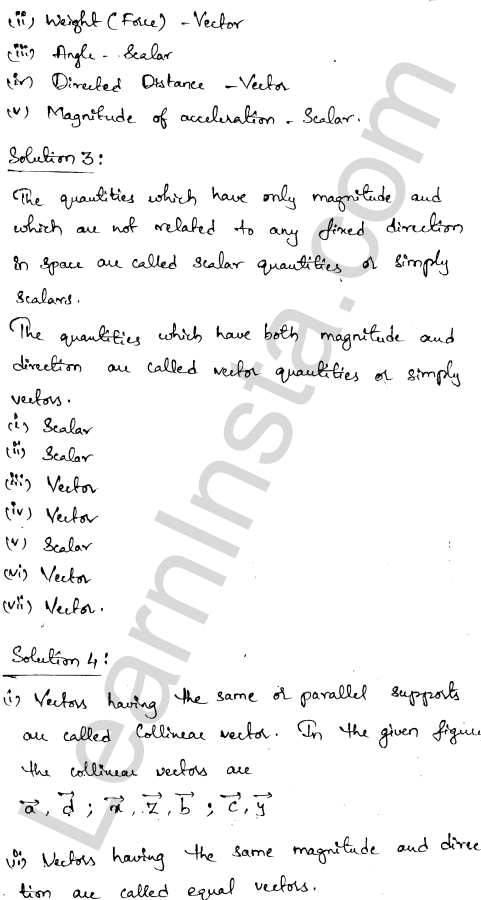 (ii) Weight (Force) - Vector
(iii) Angle - Scalar
(iv) Directed Distance - Vector
(v) Magnitude of acceleration - Scalar.
Solution 3:
The quantities which have only magnitude and
which are not related to any fixed direction
in space are called scalar quantities or simply
scalars.
The quantities which have both magnitude and
direction are called vector quantities or simply
vectors.
(i) Scalar
(ii) Scalar
(iii) Vector
(iv) Vector
(v) Scalar
(vi) Vector
(vii) Vector.
Solution 4:
(i) Vectors having the same or parallel supports
are called Collinear vector. In the given figure
the collinear vectors are
a⃗, d⃗ ; x⃗, z⃗, b⃗ ; c⃗, y⃗
(ii) Vectors having the same magnitude and direc
tion are called equal vectors.
LearnInsta.com